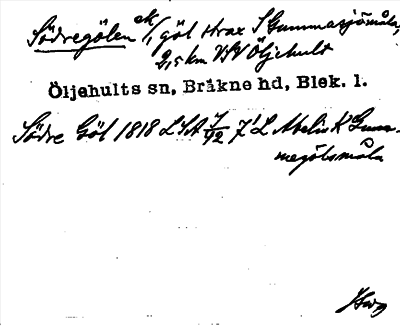 Södregölen ek 1/1, göl strax S Gummasjömåla,
2,5 km VSV Öljehult
Öljehults sn, Bräkne hd, Blek. l.
Södre Göl 1818 LSA 7/92 7'L Abelis K Gum-
megölsmåla